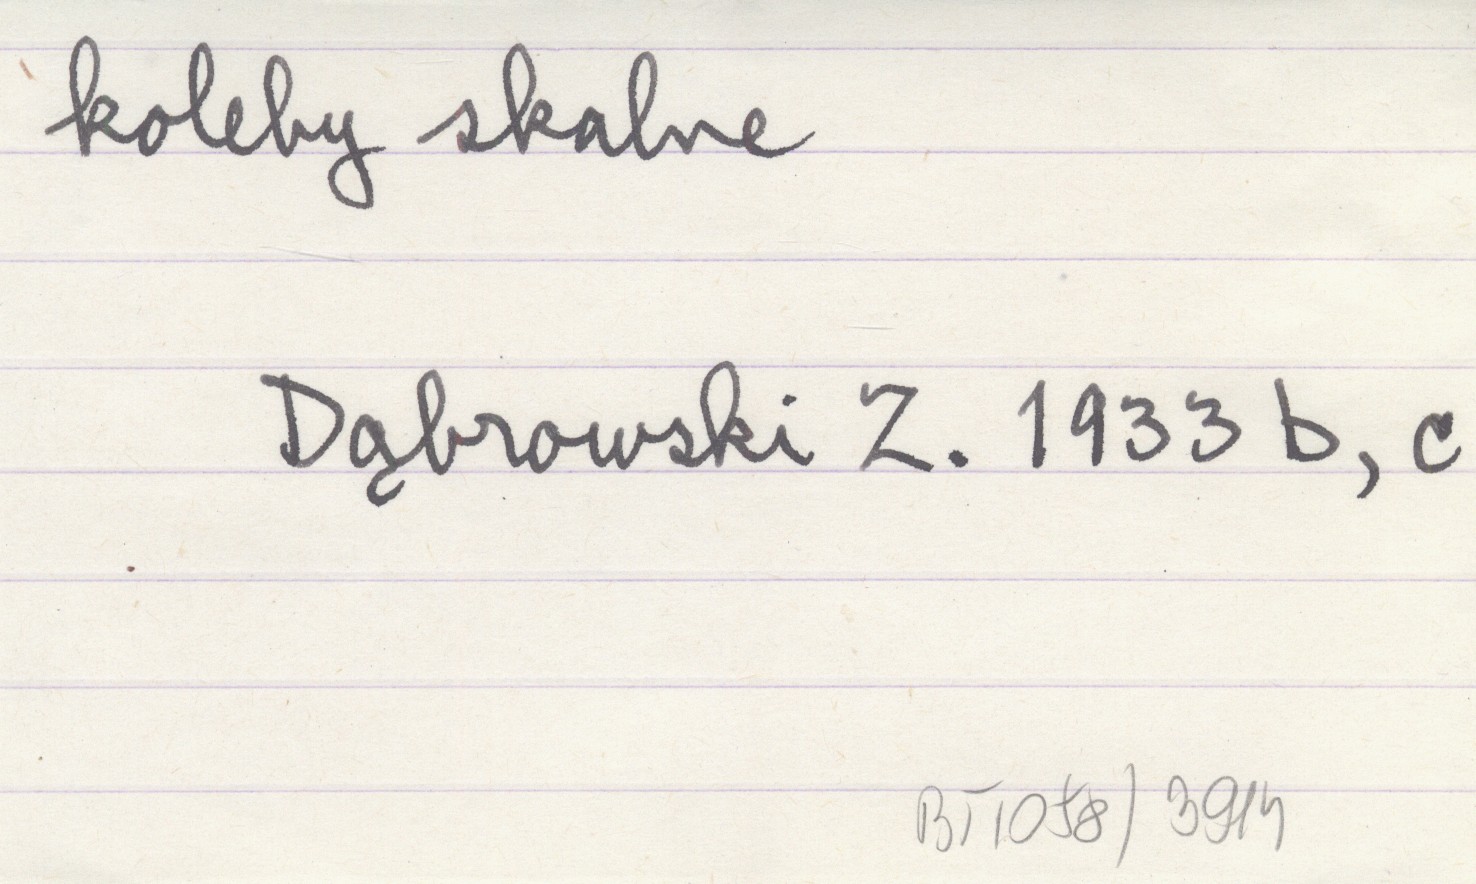 koleby skalne
Dąbrowski Z. 1933 b, c
BT1058/3914